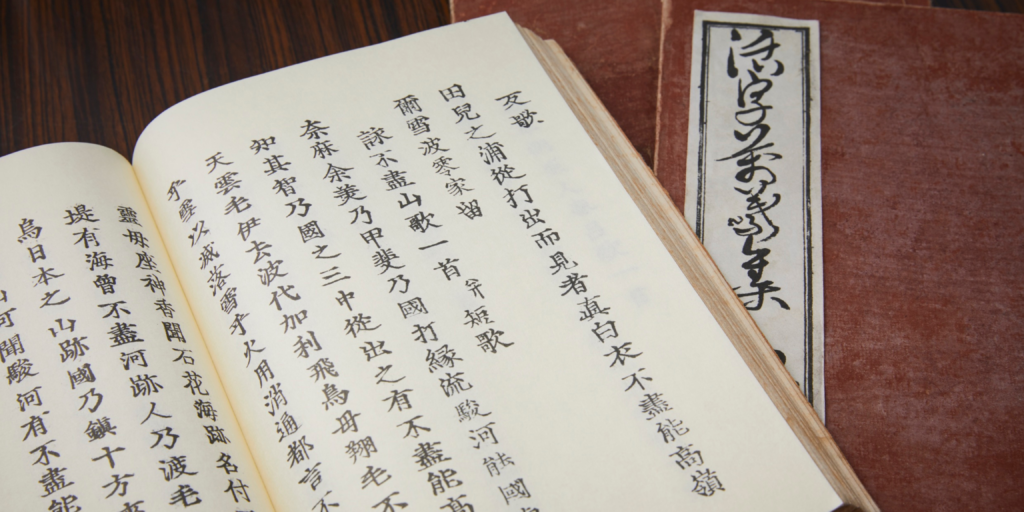 活字萬葉集
反歌
田兒之浦從打出而見者真白衣不盡能高嶺
爾雪波零家留
詠不盡山歌一首 并短歌
奈麻余美乃甲斐乃國打縁流駿河能國
知其智乃國之三中從出之有不盡能高
天雲毛伊去波代加利飛鳥母翔毛不
乎雪以滅落雪乎火用消通都言不
靈母座神香聞石花海跡名付
堤有海曾不盡河跡人乃渡毛
烏日本之山跡國乃鎮十方
河聞駿河有不盡能